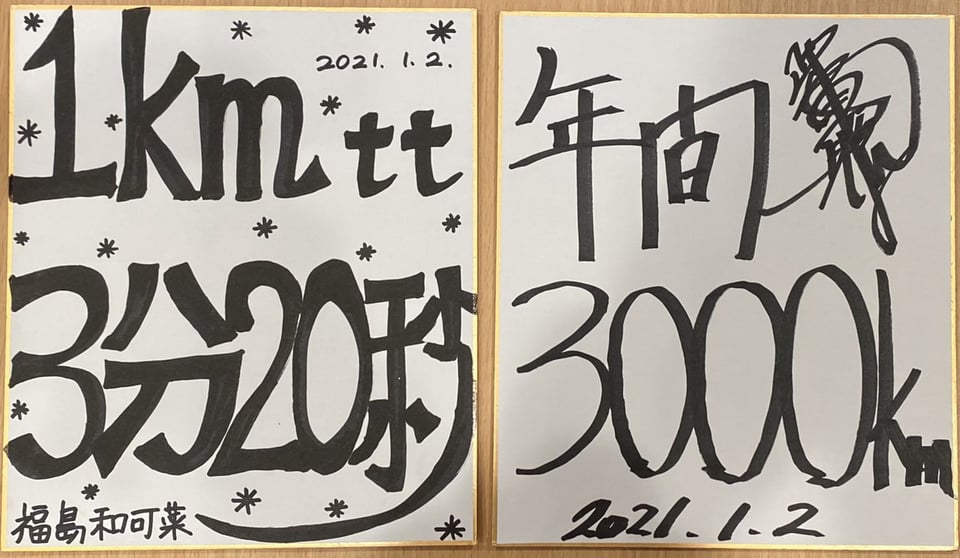 2021.1.2.
1km tt
3分20秒
福島和可菜
年間
3000km
2021.1.2